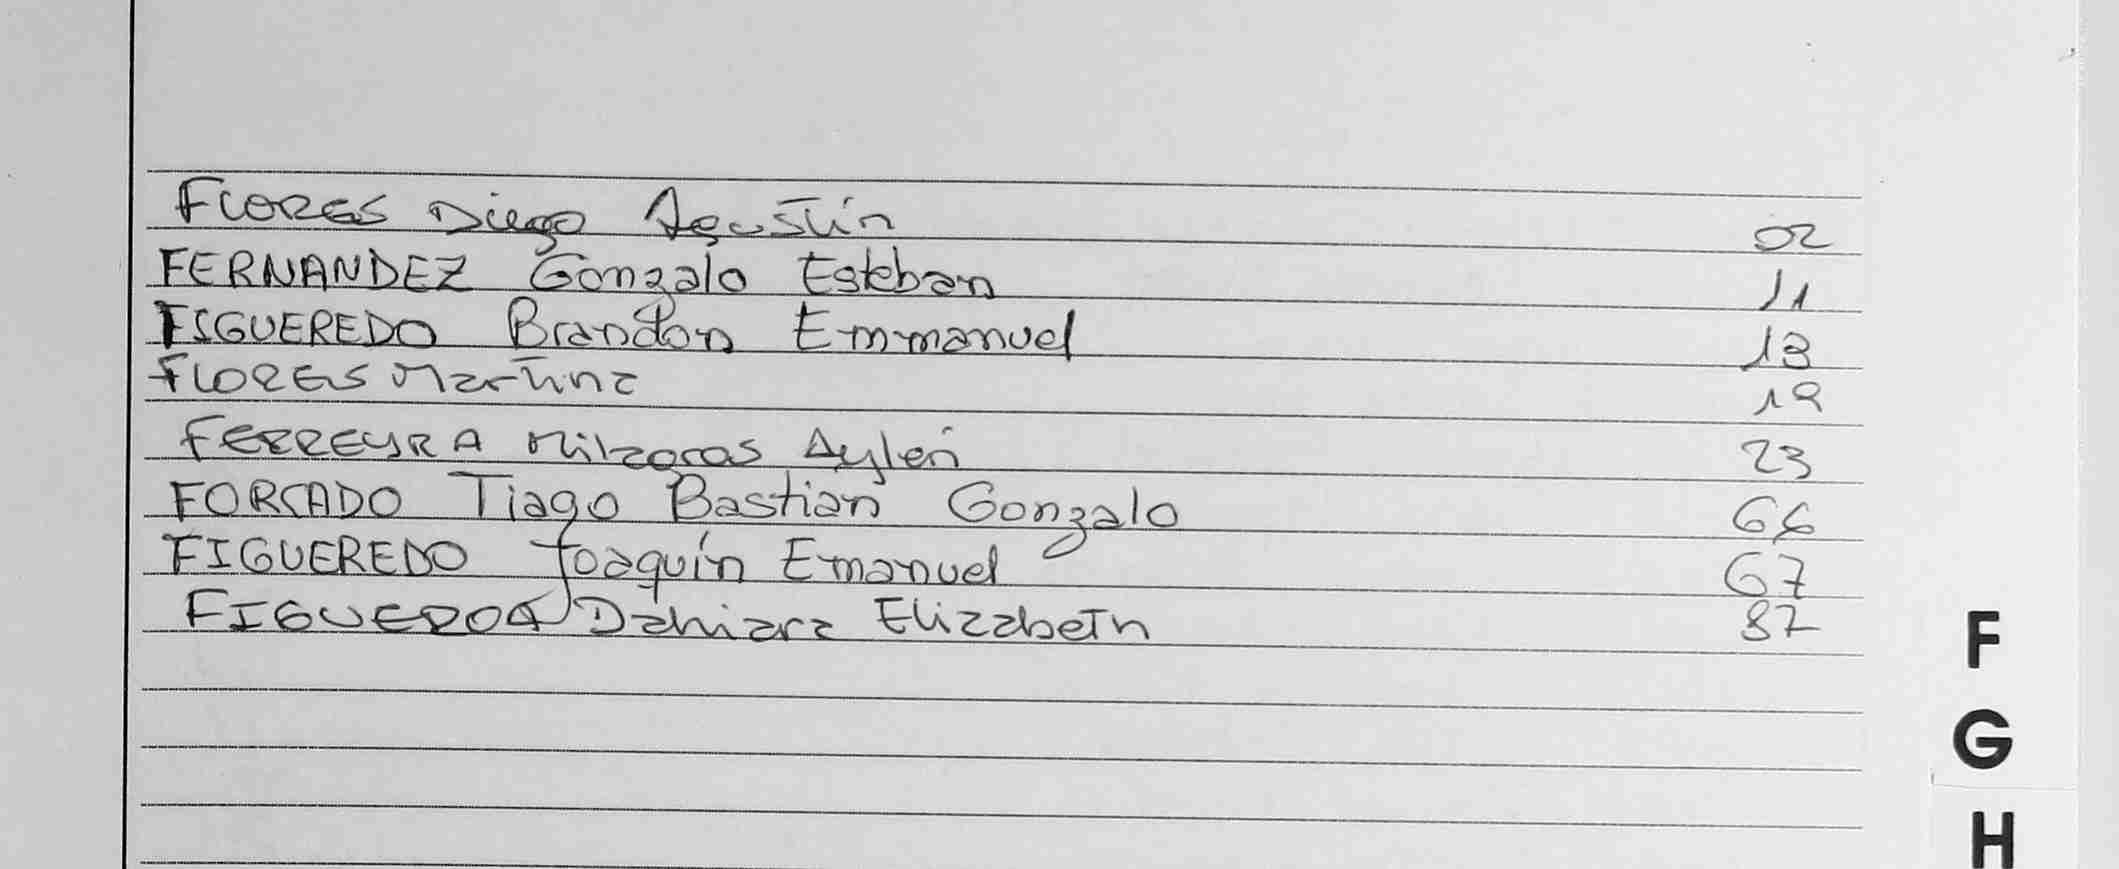 FLORES Diego Agustin 02
FERNANDEZ Gonzalo Esteban 11
FIGUEREDO Brandon Emmanuel 13
FLORES Martina 19
FERREYRA Milagros Aylen 23
FORCADO Tiago Bastian Gonzalo 66
FIGUEREDO Joaquín Emanuel 67
FIGUEROA Dahiara Elizabeth 87
F
G
H